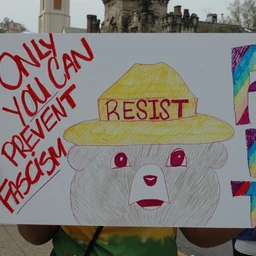 ONLY
YOU CAN
PREVENT
FASCISM
RESIST